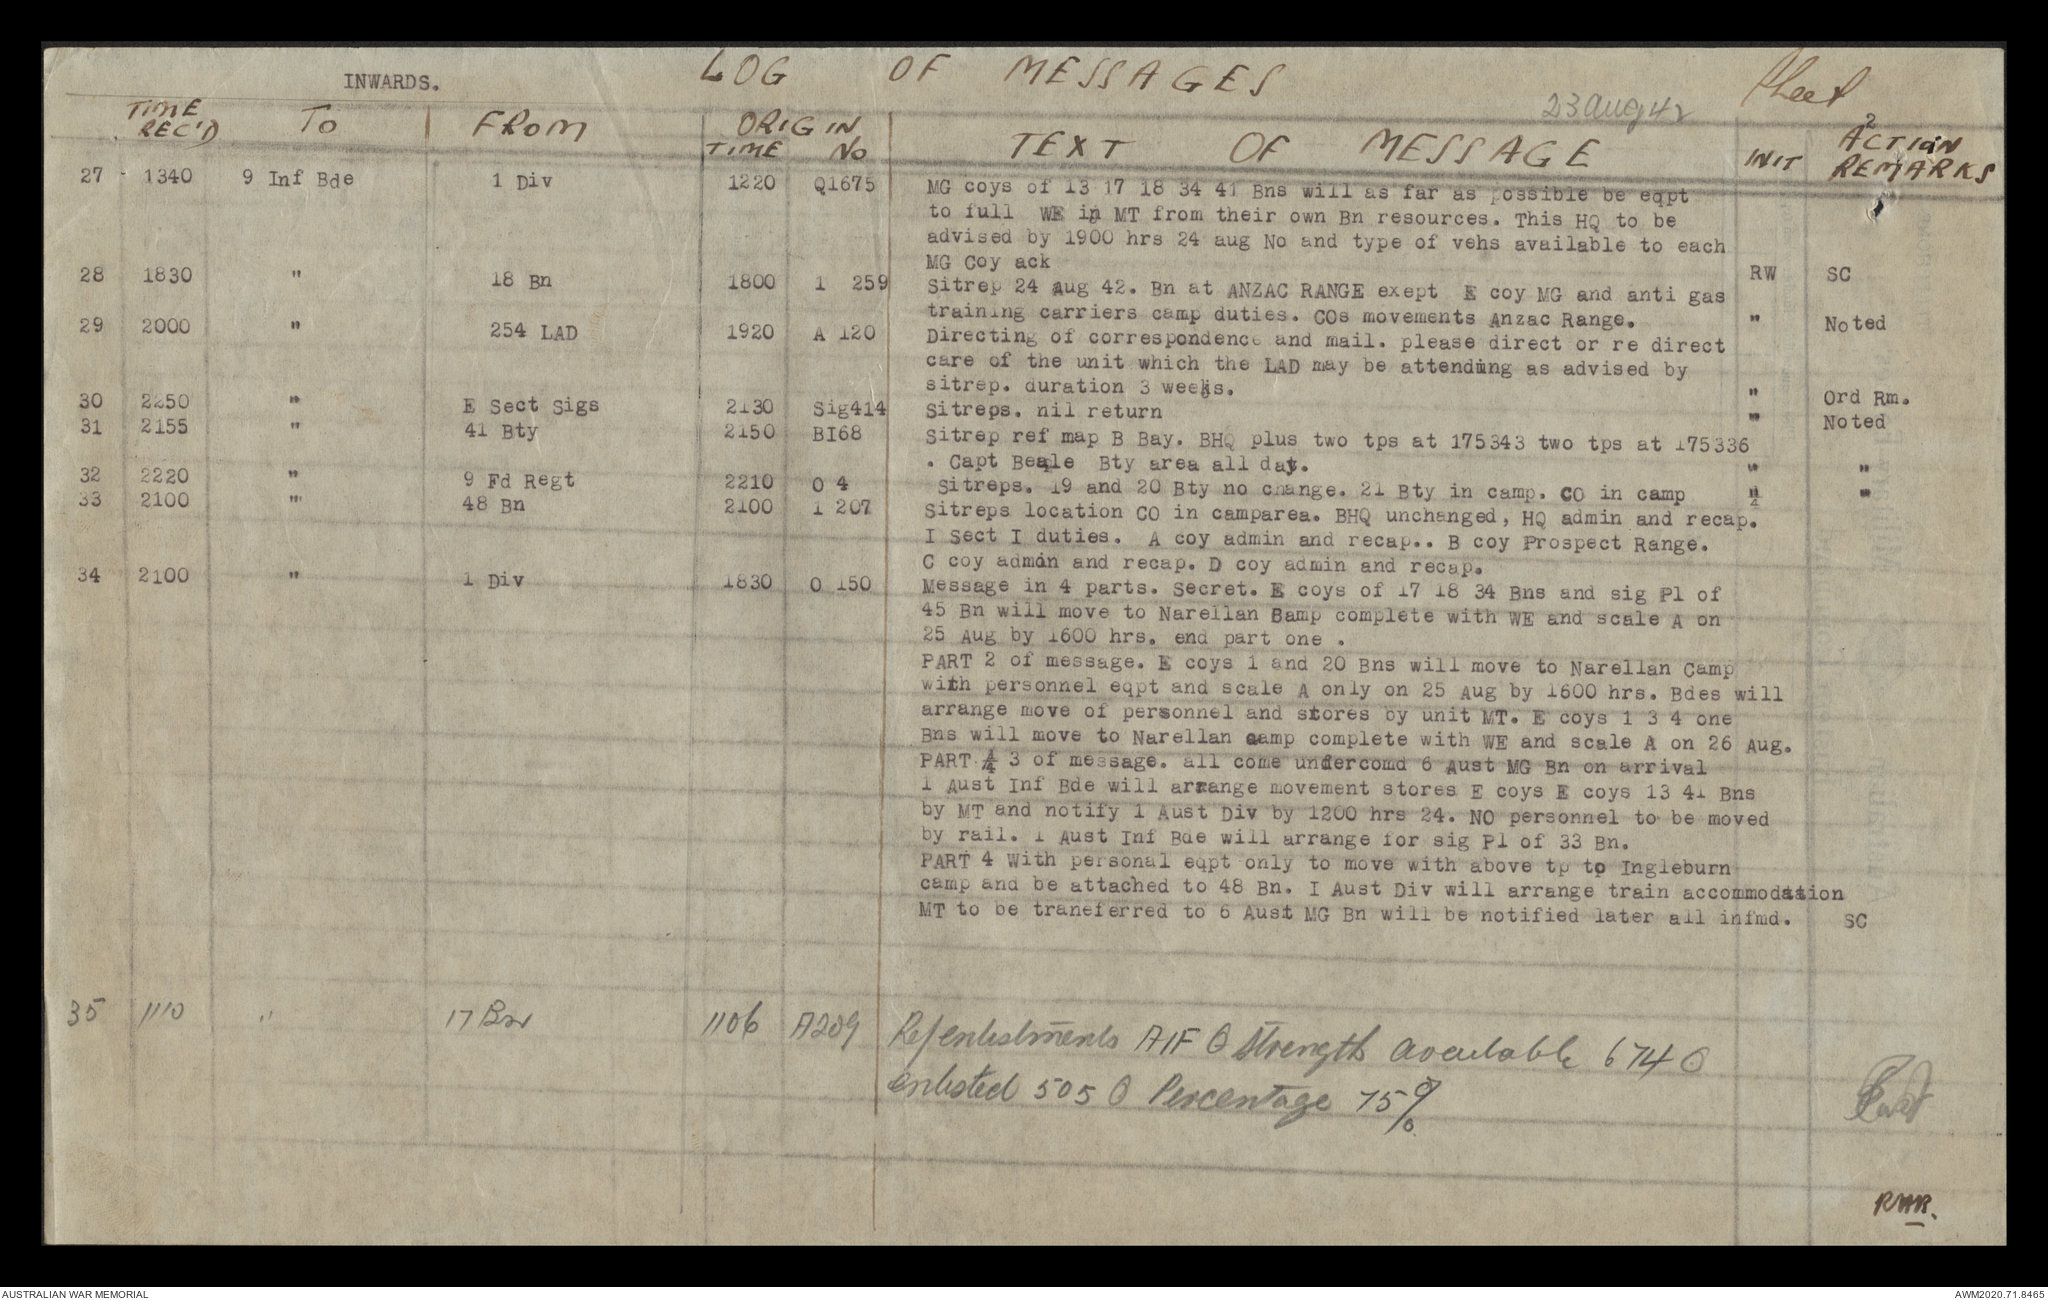 INWARDS.
LOG OF MESSAGES
Sheet
23 Aug 42
2
TIME REC'D To FROM ORIGIN TIME No TEXT OF MESSAGE INIT ACTION REMARKS
27 - 1340 9 Inf Bde 1 Div 1220 Q1675 MG coys of 13 17 18 34 41 Bns will as far as possible be eqpt
to full WE in MT from their own Bn resources. This HQ to be
advised by 1900 hrs 24 aug No and type of vehs available to each
MG Coy ack RW SC
28 1830 " 18 Bn 1800 1 259 Sitrep 24 Aug 42. Bn at ANZAC RANGE exept E coy MG and anti gas
training carriers camp duties. COs movements Anzac Range. " Noted
29 2000 " 254 LAD 1920 A 120 Directing of correspondence and mail. please direct or re direct
care of the unit which the LAD may be attending as advised by
sitrep. duration 3 weeks. " Ord Rm.
30 2250 " E Sect Sigs 2130 Sig414 Sitreps. nil return " Noted
31 2155 " 41 Bty 2150 BI68 Sitrep ref map B Bay. BHQ plus two tps at 175343 two tps at 175336
. Capt Beale Bty area all day. " "
32 2220 " 9 Fd Regt 2210 O 4 Sitreps. 19 and 20 Bty no change. 21 Bty in camp. CO in camp " "
33 2100 " 48 Bn 2100 1 207 Sitreps location CO in camparea. BHQ unchanged, HQ admin and recap.
I Sect I duties. A coy admin and recap.. B coy Prospect Range.
C coy admin and recap. D coy admin and recap.
34 2100 " 1 Div 1830 O 150 Message in 4 parts. Secret. E coys of 17 18 34 Bns and sig Pl of
45 Bn will move to Narellan Bamp complete with WE and scale A on
25 Aug by 1600 hrs. end part one .
PART 2 of message. E coys 1 and 20 Bns will move to Narellan Camp
with personnel eqpt and scale A only on 25 Aug by 1600 hrs. Bdes will
arrange move of personnel and stores by unit MT. E coys 1 3 4 one
Bns will move to Narellan camp complete with WE and scale A on 26 Aug.
PART 3 of message. all come undercomd 6 Aust MG Bn on arrival
1 Aust Inf Bde will arrange movement stores E coys E coys 13 41 Bns
by MT and notify 1 Aust Div by 1200 hrs 24. NO personnel to be moved
by rail. 1 Aust Inf Bde will arrange for sig Pl of 33 Bn.
PART 4 With personal eqpt only to move with above tp to Ingleburn
camp and be attached to 48 Bn. I Aust Div will arrange train accommodation
MT to be traneferred to 6 Aust MG Bn will be notified later all infmd. SC
35 1110 " 17 Bn 1106 A209 Ref enlistments AIF O Strength available 674 O
enlisted 505 O Percentage 75%
RHR.
AUSTRALIAN WAR MEMORIAL AWM2020.71.8465